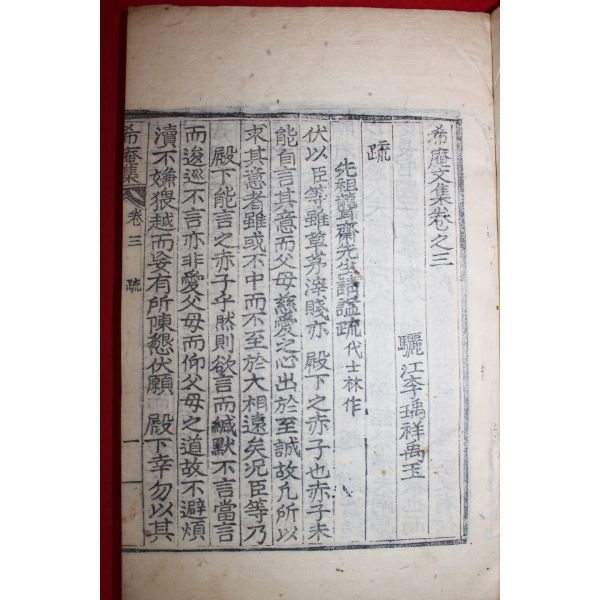 希庵文集卷之三
驪江李瑀祥禹玉
疏
先祖聾齋先生請謚疏 代士林作
伏以臣等雖草茅滓賤亦 殿下之赤子也赤子未
能自言其意而父母慈愛之心出於至誠故凡所以
求其意者雖或不中而不至於大相遠矣况臣等乃
殿下能言之赤子乎然則欲言而緘默不言當言
而逡巡不言亦非愛父母而仰父母之道故不避煩
瀆不嫌猥越而妄有所陳懇伏願 殿下幸勿以其
希庵集 卷三 疏 一